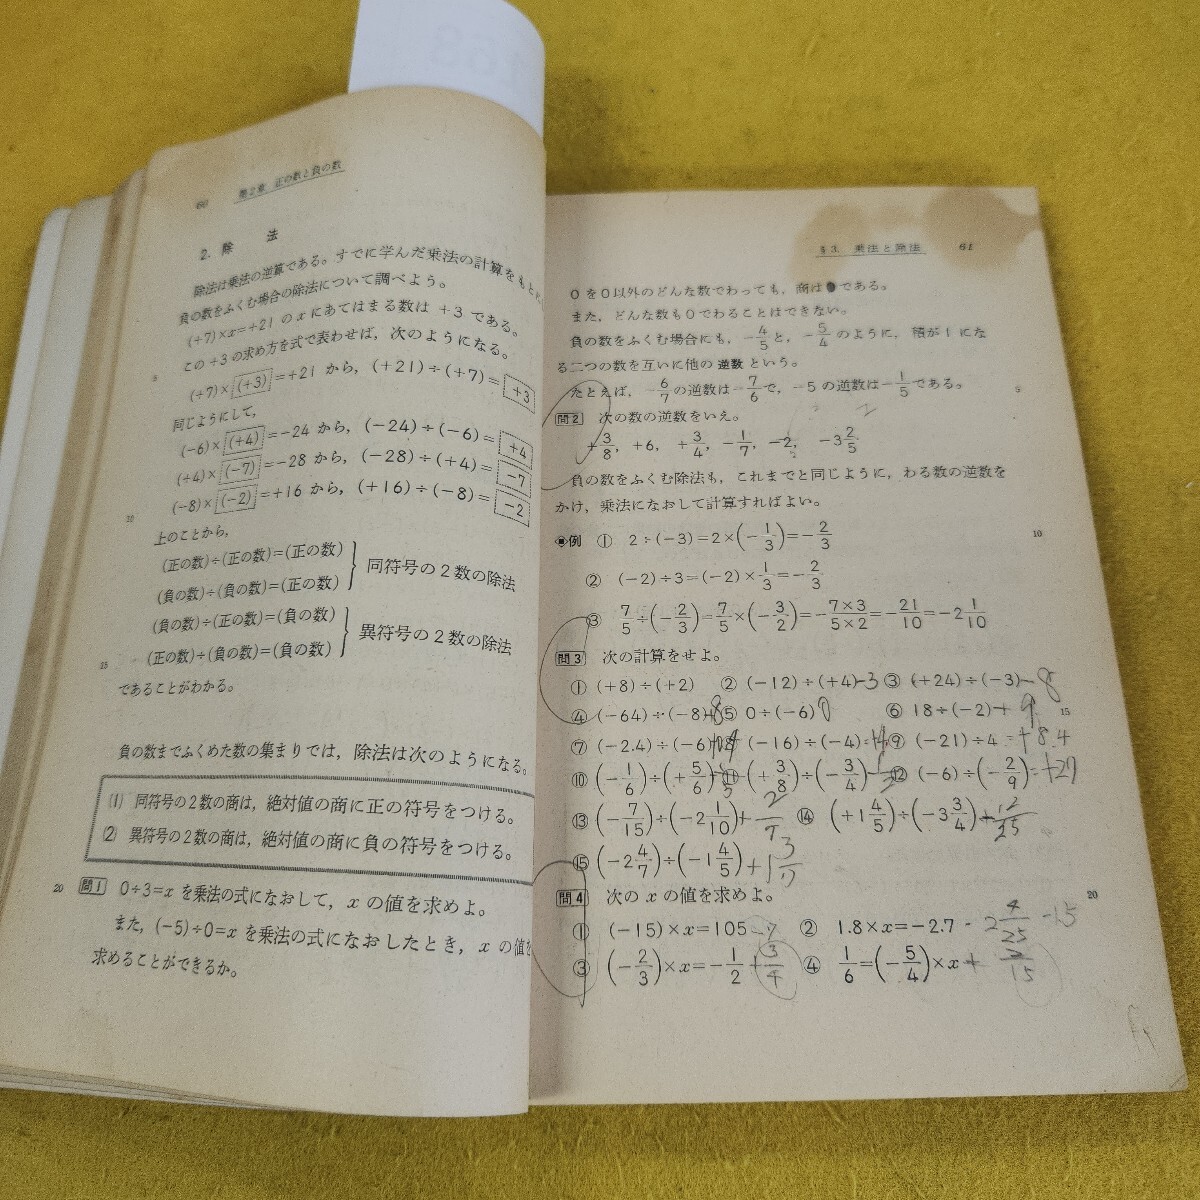 60 第2章 正の数と負の数
2. 除 法
除法は乗法の逆算である。すでに学んだ乗法の計算をもとに,
負の数をふくむ場合の除法について調べよう。
(+7)×x=+21 の x にあてはまる数は +3 である。
この +3 の求め方を式で表わせば, 次のようになる。
5
(+7)×(+3)=+21 から, (+21)÷(+7)=+3
同じようにして,
(-6)×(+4)=-24 から, (-24)÷(-6)=+4
(+4)×(-7)=-28 から, (-28)÷(+4)=-7
(-8)×(-2)=+16 から, (+16)÷(-8)=-2
10
上のことから,
(正の数)÷(正の数)=(正の数)
(負の数)÷(負の数)=(正の数)
同符号の2数の除法
(負の数)÷(正の数)=(負の数)
(正の数)÷(負の数)=(負の数)
異符号の2数の除法
15
であることがわかる。
負の数までふくめた数の集まりでは, 除法は次のようになる。
(1) 同符号の2数の商は, 絶対値の商に正の符号をつける。
(2) 異符号の2数の商は, 絶対値の商に負の符号をつける。
20 問1 0÷3=x を乗法の式になおして, x の値を求めよ。
また, (-5)÷0=x を乗法の式になおしたとき, x の値を
求めることができるか。
§3. 乗法と除法 61
0を0以外のどんな数でわっても, 商は0である。
また, どんな数も0でわることはできない。
負の数をふくむ場合にも, -4/5と, -5/4のように, 積が1にな
る二つの数を互いに他の逆数という。
たとえば, -6/7の逆数は-7/6で, -5の逆数は-1/5である。 5
問2 次の数の逆数をいえ。
+3/8, +6, +3/4, -1/7, -2, -3 2/5
負の数をふくむ除法も, これまでと同じように, わる数の逆数を
かけ, 乗法になおして計算すればよい。
例 ① 2÷(-3)=2×(-1/3)=-2/3 10
② (-2)÷3=(-2)×1/3=-2/3
③ 7/5÷(-2/3)=7/5×(-3/2)=-7×3/5×2=-21/10=-2 1/10
問3 次の計算をせよ。
① (+8)÷(+2) ② (-12)÷(+4) -3 ③ (+24)÷(-3) -8
④ (-64)÷(-8) +8 ⑤ 0÷(-6) 0 ⑥ 18÷(-2) + 9 15
⑦ (-2.4)÷(-6) ⑧ (-16)÷(-4) =+4 ⑨ (-21)÷4 =+8.4
⑩ (-1/6)÷(+5/6) ⑪ (+3/8)÷(-3/4) ⑫ (-6)÷(-2/9) =+27
⑬ (-7/15)÷(-2 1/10) + 2/7 ⑭ (+1 4/5)÷(-3 3/4) + 12/25
⑮ (-2 4/7)÷(-1 4/5) +1 3/7
問4 次の x の値を求めよ。 20
① (-15)×x=105 -7 ② 1.8×x=-2.7 -2 4/25 -15
③ (-2/3)×x=-1/2 + 3/4 ④ 1/6=(-5/4)×x + 2/15